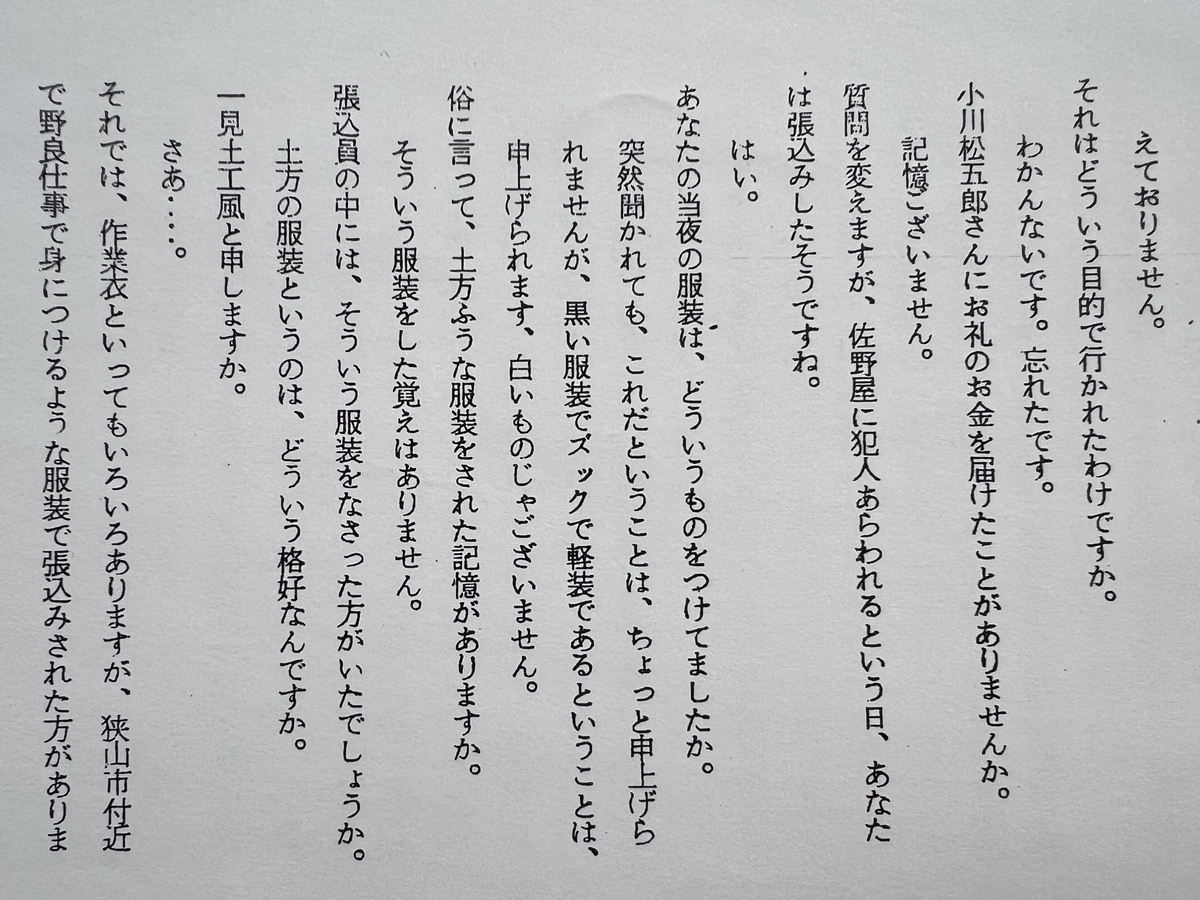 えておりません。
それはどういう目的で行かれたわけですか。
わかんないです。忘れたです。
小川松五郎さんにお礼のお金を届けたことがありませんか。
記憶ございません。
質問を変えますが、佐野屋に犯人あらわれるという日、あなた
は張込みしたそうですね。
はい。
あなたの当夜の服装は、どういうものをつけてましたか。
突然聞かれても、これだということは、ちょっと申上げら
れませんが、黒い服装でズックで軽装であるということは、
申上げられます、白いものじゃございません。
俗に言って、土方ふうな服装をされた記憶がありますか。
そういう服装をした覚えはありません。
張込員の中には、そういう服装をなさった方がいたでしょうか。
土方の服装というのは、どういう格好なんですか。
一見土工風と申しますか。
さあ‥‥。
それでは、作業衣といってもいろいろありますが、狭山市付近
で野良仕事で身につけるような服装で張込みされた方がありま